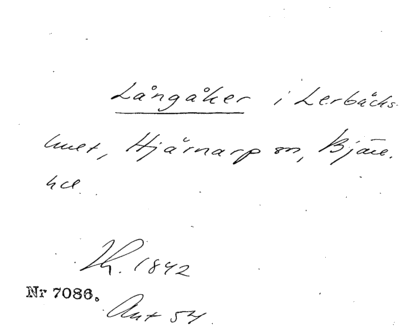 Långåker i Lerbäcks-
huset, Hjärnarp sn, Bjäre
hd
Th. 1842
Nr 7086.
Ant 54